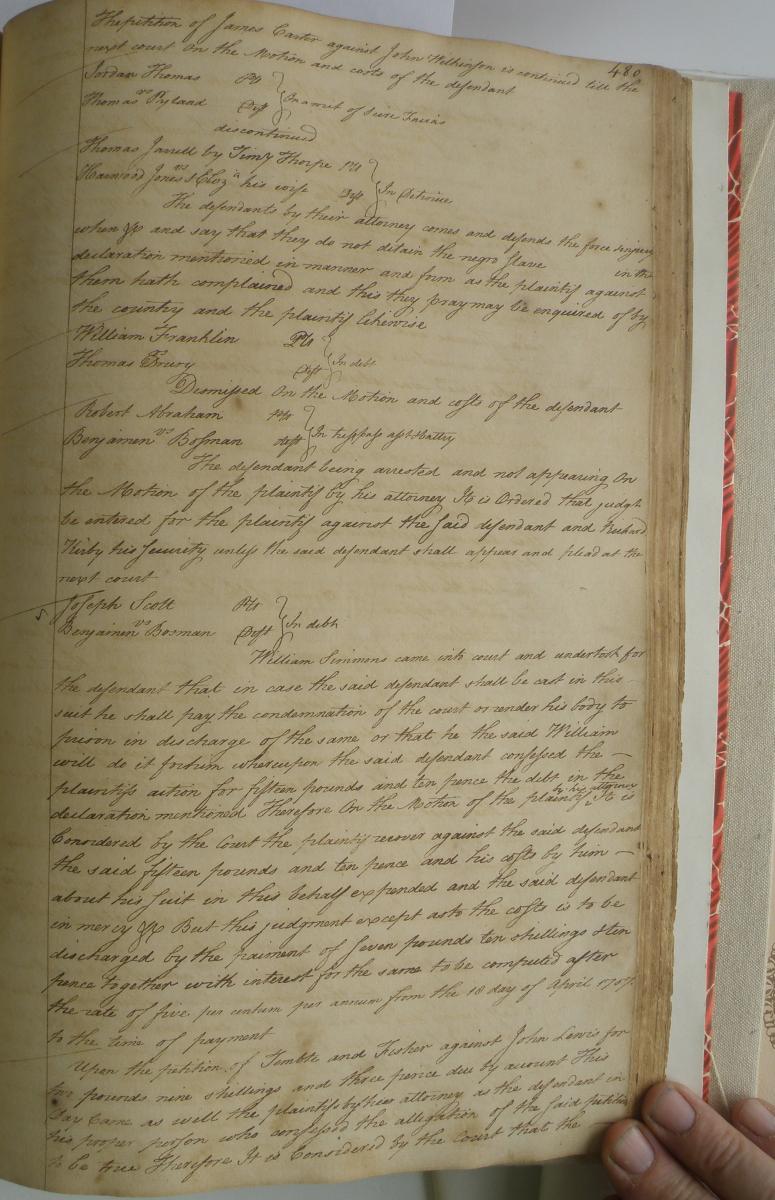 480
The petition of James Carter against John Wilkinson is continued till the
next court On the Motion and costs of the defendant
Jordan Thomas Plt
vs
Thomas Ryland Deft
In a writ of Scire Facias
discontinued
Thomas Jarrell by Timy Thorpe Plt
vs
Harwood Jones & Elizth his wife Defts
In Detinue
The defendants by their attorney comes and defends the force & injury
when &c and say that they do not detain the negro slave in the
declaration mentioned in manner and form as the plaintif against
them hath complained and this they pray may be enquired of by
the country and the plaintif likewise
William Franklin Plt
vs
Thomas Drury Deft
In debt
Dismissed On the Motion and costs of the defendant
Robert Abraham Plt
vs
Benjamen Bosman Deft
In trespass asst & battry
The defendant being arrested and not appearing On
the Motion of the plaintif by his attorney It is Ordered that judgt
be entered for the plaintif against the said defendant and Richard
Kirby his security unless the said defendant shall appear and plead at the
next court
Joseph Scott Plt
vs
Benjamen Bosman Deft
In debt
William Simmons came into court and undertook for
the defendant that in case the said defendant shall be cast in this
suit he shall pay the condemnation of the court or render his body to
prison in discharge of the same or that he the said William
will do it for him whereupon the said defendant confessed the
plaintifs action for fifteen pounds and ten pence the debt in the
by his attorney
declaration mentioned Therefore On the Motion of the plaintif It is
Considered by the Court the plaintif recover against the said defendant
the said fifteen pounds and ten pence and his costs by him
about his suit in this behalf expended and the said defendant
in mercy &c But this judgment except as to the costs is to be
discharged by the paiment of seven pounds ten shillings & ten
pence together with interest for the same to be computed after
the rate of five per centum per annum from the 18 day of April
to the time of payment
Upon the petition of and Fisher against John Lewis for
pounds nine shillings and three pence due by account This
Day Came as well the plaintifs by their attorney as the defendant in
his proper person who confessed the allegation of the said petition
to be true Therefore It is Considered by the Court that the